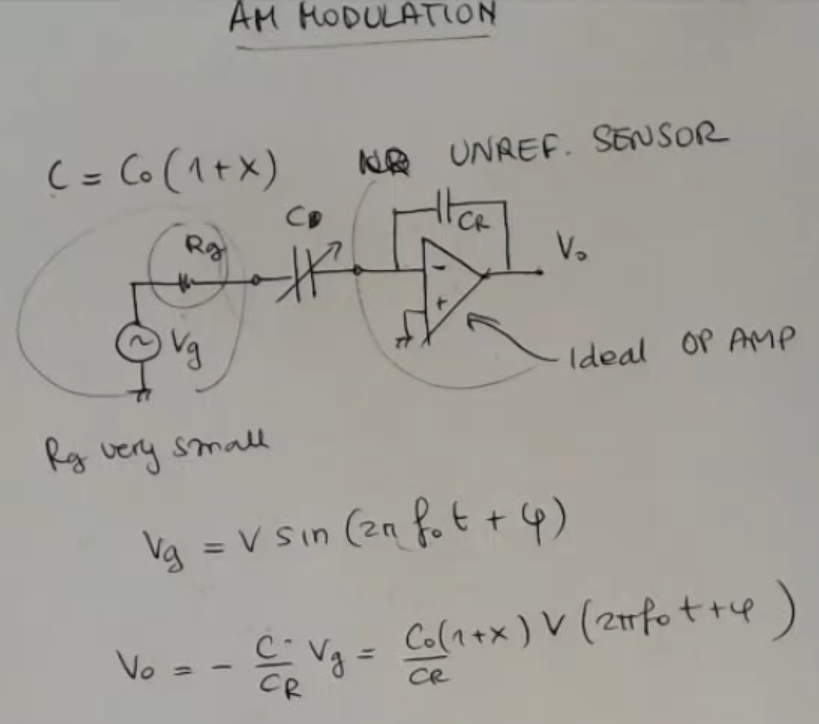 AM MODULATION
C = Co(1+x)
UNREF. SENSOR
C
CR
Rg
Vo
Vg
- 
+
Ideal OP AMP
Rg very small
Vg = V sin (2π fot + φ)
Vo = - C/CR Vg = Co(1+x)/CR V (2πfot+φ)